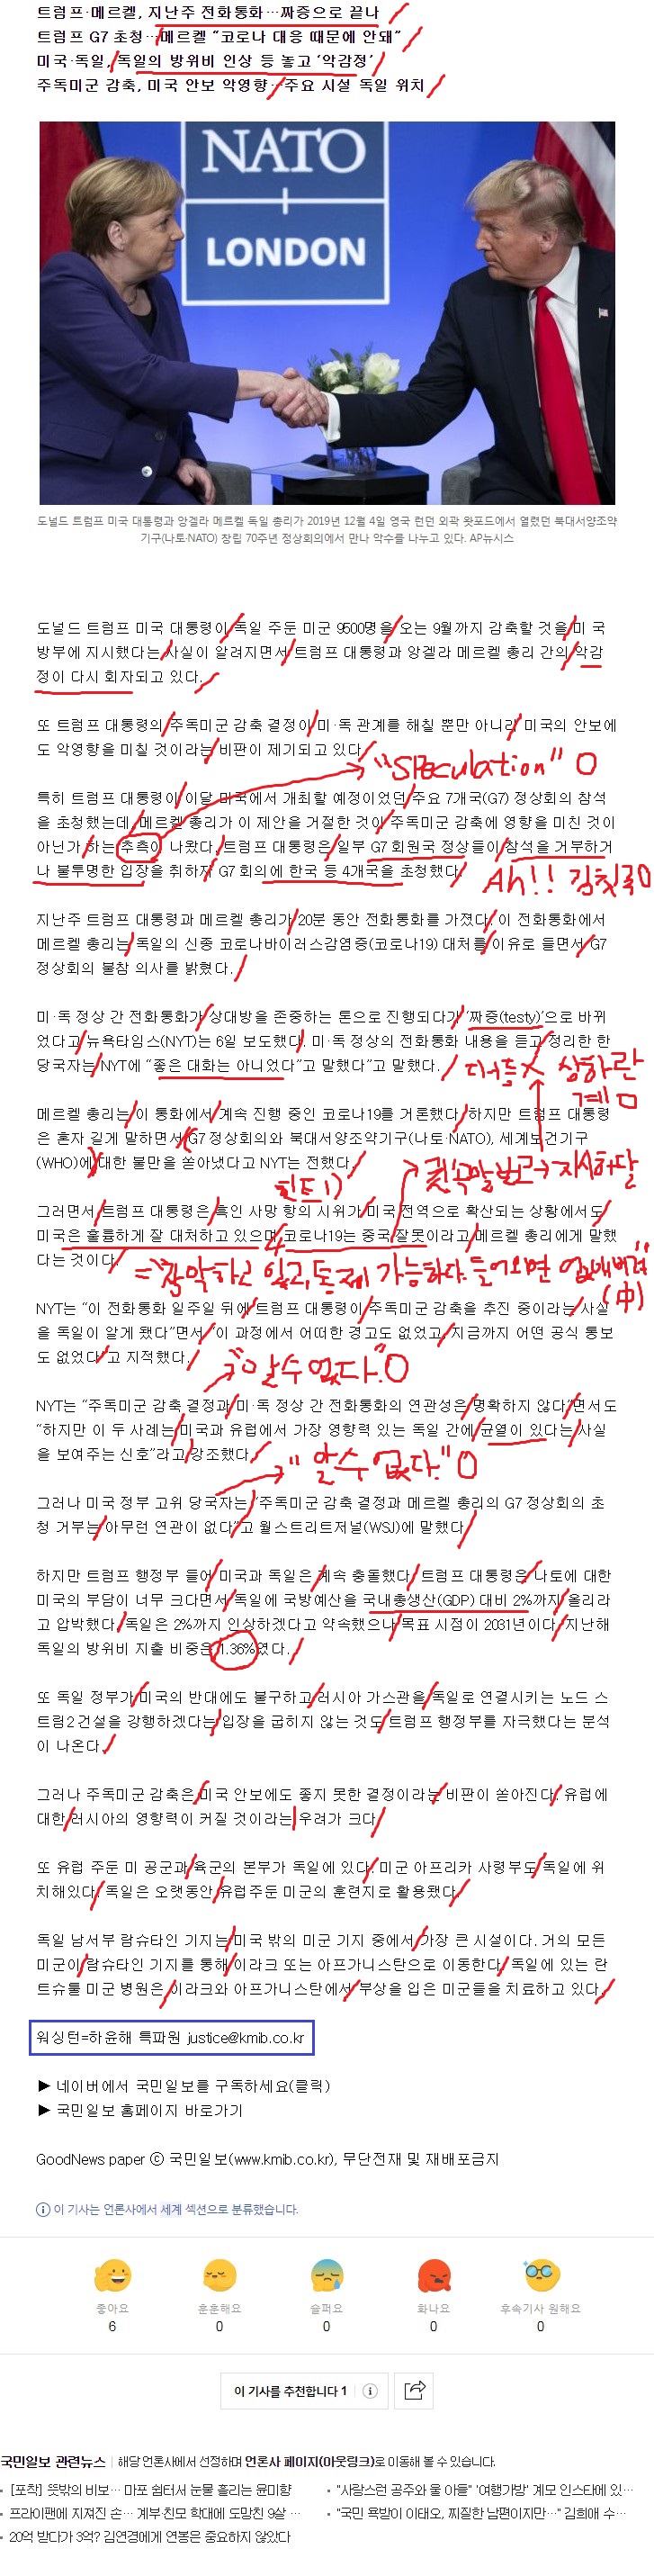 트럼프·메르켈, 지난주 전화통화…짜증으로 끝나
트럼프 G7 초청…메르켈 “코로나 대응 때문에 안돼”
미국·독일, 독일의 방위비 인상 등 놓고 ‘악감정’
주독미군 감축, 미국 안보 악영향…주요 시설 독일 위치
NATO
LONDON
도널드 트럼프 미국 대통령과 앙겔라 메르켈 독일 총리가 2019년 12월 4일 영국 런던 외곽 왓포드에서 열렸던 북대서양조약
기구(나토·NATO) 창립 70주년 정상회의에서 만나 악수를 나누고 있다. AP뉴시스
도널드 트럼프 미국 대통령이 독일 주둔 미군 9500명을 오는 9월까지 감축할 것을 미 국
방부에 지시했다는 사실이 알려지면서 트럼프 대통령과 앙겔라 메르켈 총리 간의 악감
정이 다시 회자되고 있다.
또 트럼프 대통령의 주독미군 감축 결정이 미·독 관계를 해칠 뿐만 아니라 미국의 안보에
도 악영향을 미칠 것이라는 비판이 제기되고 있다.
"Speculation" O
특히 트럼프 대통령이 이달 미국에서 개최할 예정이었던 주요 7개국(G7) 정상회의 참석
을 초청했는데, 메르켈 총리가 이 제안을 거절한 것이 주독미군 감축에 영향을 미친 것이
아닌가 하는 추측이 나왔다. 트럼프 대통령은 일부 G7 회원국 정상들이 참석을 거부하거
나 불투명한 입장을 취하자 G7 회의에 한국 등 4개국을 초청했다.
Ah!! 김칫국O
지난주 트럼프 대통령과 메르켈 총리가 20분 동안 전화통화를 가졌다. 이 전화통화에서
메르켈 총리는 독일의 신종 코로나바이러스감염증(코로나19) 대처를 이유로 들면서 G7
정상회의 불참 의사를 밝혔다.
미·독 정상 간 전화통화가 상대방을 존중하는 톤으로 진행되다가 ‘짜증(testy)’으로 바뀌
었다고 뉴욕타임스(NYT)는 6일 보도했다. 미·독 정상의 전화통화 내용을 듣고 정리한 한
당국자는 NYT에 “좋은 대화는 아니었다”고 말했다”고 말했다.
대등X 상하관
계ㅁ
메르켈 총리는 이 통화에서 계속 진행 중인 코로나19를 거론했다. 하지만 트럼프 대통령
은 혼자 길게 말하면서 G7 정상회의와 북대서양조약기구(나토·NATO), 세계보건기구
(WHO)에 대한 불만을 쏟아냈다고 NYT는 전했다.
힌트1)
그러면서 트럼프 대통령은 흑인 사망 항의 시위가 미국 전역으로 확산되는 상황에서도
미국은 훌륭하게 잘 대처하고 있으며 코로나19는 중국 잘못이라고 메르켈 총리에게 말했
다는 것이다.
NYT는 “이 전화통화 일주일 뒤에 트럼프 대통령이 주독미군 감축을 추진 중이라는 사실
을 독일이 알게 됐다”면서 “이 과정에서 어떠한 경고도 없었고, 지금까지 어떤 공식 통보
도 없었다”고 지적했다.
"알수없다."O
NYT는 “주독미군 감축 결정과 미·독 정상 간 전화통화의 연관성은 명확하지 않다”면서도
“하지만 이 두 사례는 미국과 유럽에서 가장 영향력 있는 독일 간에 균열이 있다는 사실
을 보여주는 신호”라고 강조했다.
"알수없다."O
그러나 미국 정부 고위 당국자는 “주독미군 감축 결정과 메르켈 총리의 G7 정상회의 초
청 거부는 아무런 연관이 없다”고 월스트리트저널(WSJ)에 말했다.
하지만 트럼프 행정부 들어 미국과 독일은 계속 충돌했다. 트럼프 대통령은 나토에 대한
미국의 부담이 너무 크다면서 독일에 국방예산을 국내총생산(GDP) 대비 2%까지 올리라
고 압박했다. 독일은 2%까지 인상하겠다고 약속했으나 목표 시점이 2031년이다. 지난해
독일의 방위비 지출 비중은 1.36%였다.
또 독일 정부가 미국의 반대에도 불구하고 러시아 가스관을 독일로 연결시키는 노드 스
트림2 건설을 강행하겠다는 입장을 굽히지 않는 것도 트럼프 행정부를 자극했다는 분석
이 나온다.
그러나 주독미군 감축은 미국 안보에도 좋지 못한 결정이라는 비판이 쏟아진다. 유럽에
대한 러시아의 영향력이 커질 것이라는 우려가 크다.
또 유럽 주둔 미 공군과 육군의 본부가 독일에 있다. 미군 아프리카 사령부도 독일에 위
치해있다. 독일은 오랫동안 유럽주둔 미군의 훈련지로 활용됐다.
독일 남서부 람슈타인 기지는 미국 밖의 미군 기지 중에서 가장 큰 시설이다. 거의 모든
미군이 람슈타인 기지를 통해 이라크 또는 아프가니스탄으로 이동한다. 독일에 있는 란
트슈툴 미군 병원은 이라크와 아프가니스탄에서 부상을 입은 미군들을 치료하고 있다.
워싱턴=하윤해 특파원 justice@kmib.co.kr
▶ 네이버에서 국민일보를 구독하세요(클릭)
▶ 국민일보 홈페이지 바로가기
GoodNews paper ⓒ 국민일보(www.kmib.co.kr), 무단전재 및 재배포금지
이 기사는 언론사에서 세계 섹션으로 분류했습니다.
좋아요 훈훈해요 슬퍼요 화나요 후속기사 원해요
6 0 0 0 0
이 기사를 추천합니다 1
국민일보 관련뉴스 해당 언론사에서 선정하며 언론사 페이지(아웃링크)로 이동해 볼 수 있습니다.
[포착] 뜻밖의 비보… 마포 쉼터서 눈물 흘리는 윤미향
"사랑스런 공주와 울 아들" '여행가방' 계모 인스타에 있…
프라이팬에 지져진 손… 계부·친모 학대에 도망친 9살 …
"국민 욕받이 이태오, 찌질한 남편이지만…" 김희애 수…
20억 받다가 3억? 김연경에게 연봉은 중요하지 않았다